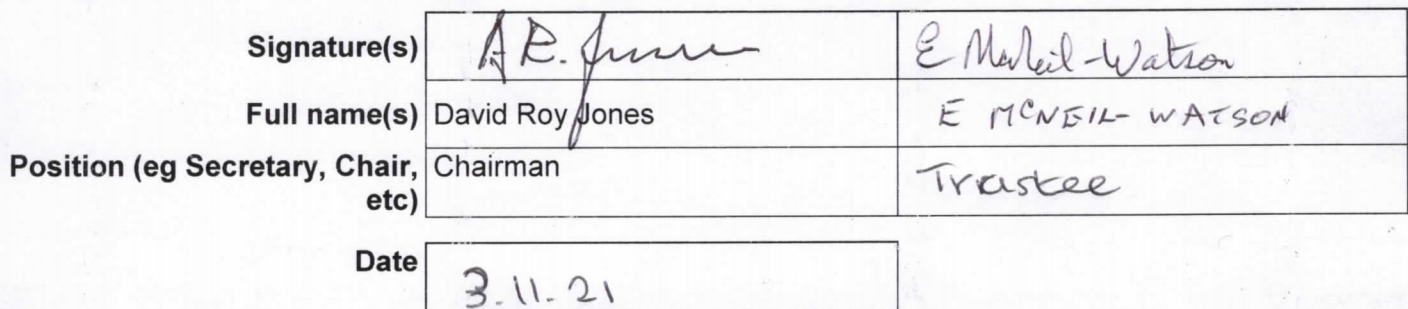 Signature(s) E McNeil-Watson
Full name(s) David Roy Jones E MCNEIL-WATSON
Position (eg Secretary, Chair, Chairman Trustee
etc)
Date 3.11.21